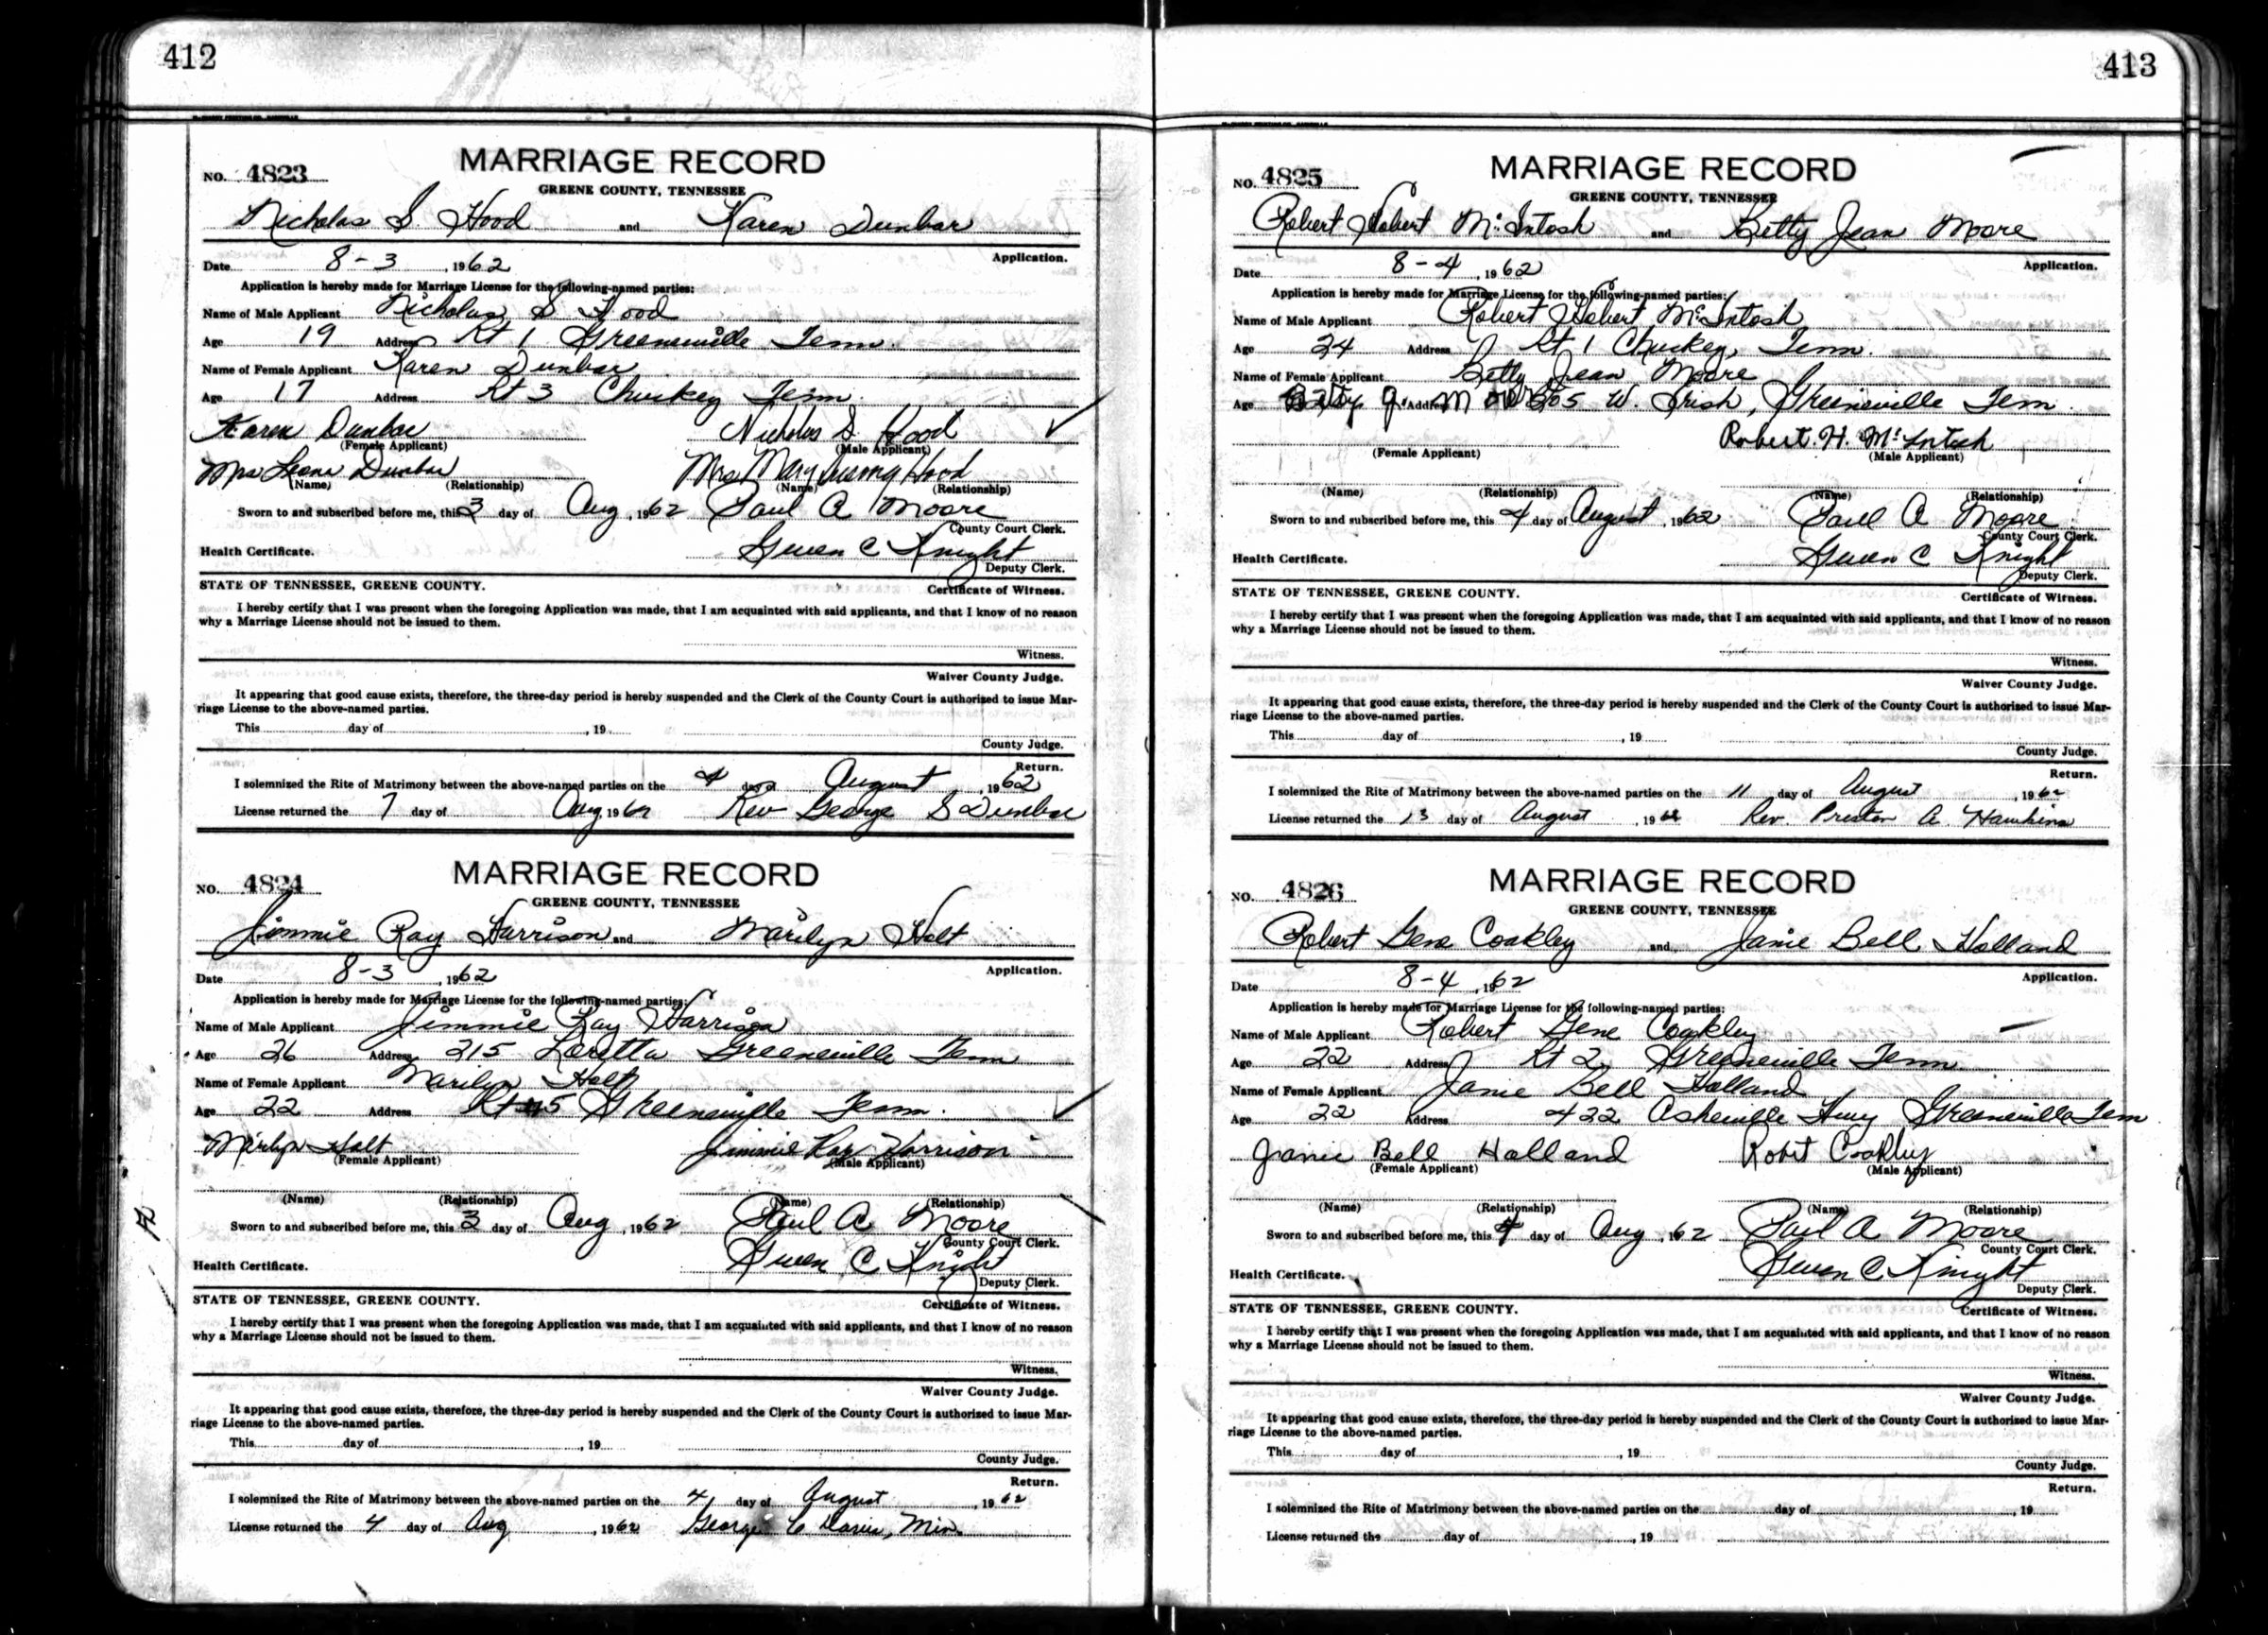 412
NO. 4823
MARRIAGE RECORD
GREENE COUNTY, TENNESSEE
Nicholas S. Hood and Karen Dunbar
Application.
Date 8-3, 1962
Application is hereby made for Marriage License for the following-named parties:
Name of Male Applicant Nicholas S Hood
Age 19 Address Rt 1 Greeneville Tenn.
Name of Female Applicant Karen Dunbar
Age 17 Address Rt 3 Chuckey Tenn.
Karen Dunbar Nicholas S. Hood
(Female Applicant) (Male Applicant)
Mrs Leona Dunbar Mrs Mary Hood
(Name) (Relationship) (Name) (Relationship)
Sworn to and subscribed before me, this 3 day of Aug, 1962 Paul A Moore
County Court Clerk.
Health Certificate. Gwen C Knight
Deputy Clerk.
STATE OF TENNESSEE, GREENE COUNTY. Certificate of Witness.
I hereby certify that I was present when the foregoing Application was made, that I am acquainted with said applicants, and that I know of no reason
why a Marriage License should not be issued to them.
Witness.
Waiver County Judge.
It appearing that good cause exists, therefore, the three-day period is hereby suspended and the Clerk of the County Court is authorized to issue Mar-
riage License to the above-named parties.
This day of , 19
County Judge.
Return.
I solemnized the Rite of Matrimony between the above-named parties on the 4 day of August, 1962
License returned the 7 day of Aug 1962 Rev George S Dunbar
NO. 4824
MARRIAGE RECORD
GREENE COUNTY, TENNESSEE
Jimmie Ray Harrison and Marilyn Holt
Application.
Date 8-3, 1962
Application is hereby made for Marriage License for the following-named parties:
Name of Male Applicant Jimmie Ray Harrison
Age 26 Address 215 Loretta Greeneville Tenn
Name of Female Applicant Marilyn Holt
Age 22 Address Rt 5 Greeneville Tenn.
Marilyn Holt Jimmie Ray Harrison
(Female Applicant) (Male Applicant)
(Name) (Relationship) (Name) (Relationship)
Sworn to and subscribed before me, this 3 day of Aug, 1962 Paul A Moore
County Court Clerk.
Health Certificate. Gwen C Knight
Deputy Clerk.
STATE OF TENNESSEE, GREENE COUNTY. Certificate of Witness.
I hereby certify that I was present when the foregoing Application was made, that I am acquainted with said applicants, and that I know of no reason
why a Marriage License should not be issued to them.
Witness.
Waiver County Judge.
It appearing that good cause exists, therefore, the three-day period is hereby suspended and the Clerk of the County Court is authorized to issue Mar-
riage License to the above-named parties.
This day of , 19
County Judge.
Return.
I solemnized the Rite of Matrimony between the above-named parties on the 4 day of August, 1962
License returned the 4 day of Aug, 1962 George C Davis, Min.
413
NO. 4825
MARRIAGE RECORD
GREENE COUNTY, TENNESSEE
Robert Hobert McIntosh and Betty Jean Moore
Application.
Date 8-4, 1962
Application is hereby made for Marriage License for the following-named parties:
Name of Male Applicant Robert Hobert McIntosh
Age 24 Address Rt 1 Chuckey, Tenn.
Name of Female Applicant Betty Jean Moore
Age Betty J. Address 805 W. Irish, Greeneville Tenn.
Robert. H. McIntosh
(Female Applicant) (Male Applicant)
(Name) (Relationship) (Name) (Relationship)
Sworn to and subscribed before me, this 4 day of August, 1962 Paul A Moore
County Court Clerk.
Health Certificate. Gwen C Knight
Deputy Clerk.
STATE OF TENNESSEE, GREENE COUNTY. Certificate of Witness.
I hereby certify that I was present when the foregoing Application was made, that I am acquainted with said applicants, and that I know of no reason
why a Marriage License should not be issued to them.
Witness.
Waiver County Judge.
It appearing that good cause exists, therefore, the three-day period is hereby suspended and the Clerk of the County Court is authorized to issue Mar-
riage License to the above-named parties.
This day of , 19
County Judge.
Return.
I solemnized the Rite of Matrimony between the above-named parties on the 11 day of August, 1962
License returned the 13 day of August, 1962 Rev. Preston A Hawkins
NO. 4826
MARRIAGE RECORD
GREENE COUNTY, TENNESSEE
Robert Gene Coakley and Janie Bell Holland
Application.
Date 8-4, 1962
Application is hereby made for Marriage License for the following-named parties:
Name of Male Applicant Robert Gene Coakley
Age 22 Address Rt 2 Greeneville Tenn.
Name of Female Applicant Janie Bell Holland
Age 22 Address 422 Asheville Hwy Greeneville Tenn
Janie Bell Holland Robert Coakley
(Female Applicant) (Male Applicant)
(Name) (Relationship) (Name) (Relationship)
Sworn to and subscribed before me, this 4 day of Aug, 1962 Paul A Moore
County Court Clerk.
Health Certificate. Gwen C Knight
Deputy Clerk.
STATE OF TENNESSEE, GREENE COUNTY. Certificate of Witness.
I hereby certify that I was present when the foregoing Application was made, that I am acquainted with said applicants, and that I know of no reason
why a Marriage License should not be issued to them.
Witness.
Waiver County Judge.
It appearing that good cause exists, therefore, the three-day period is hereby suspended and the Clerk of the County Court is authorized to issue Mar-
riage License to the above-named parties.
This day of , 19
County Judge.
Return.
I solemnized the Rite of Matrimony between the above-named parties on the day of , 19
License returned the day of , 19